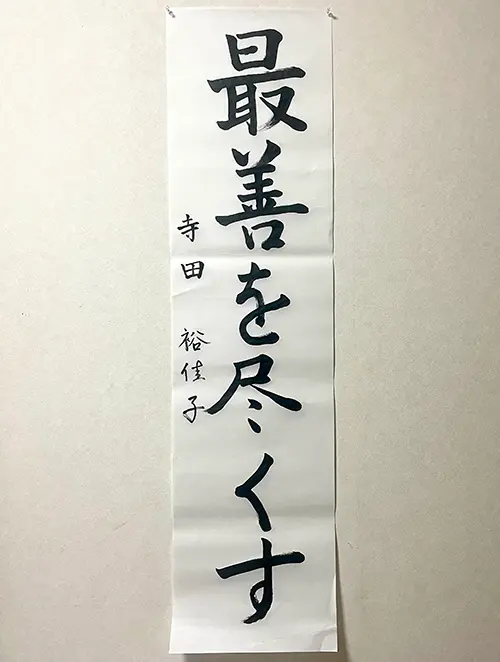 最善を尽くす
寺田 裕佳子